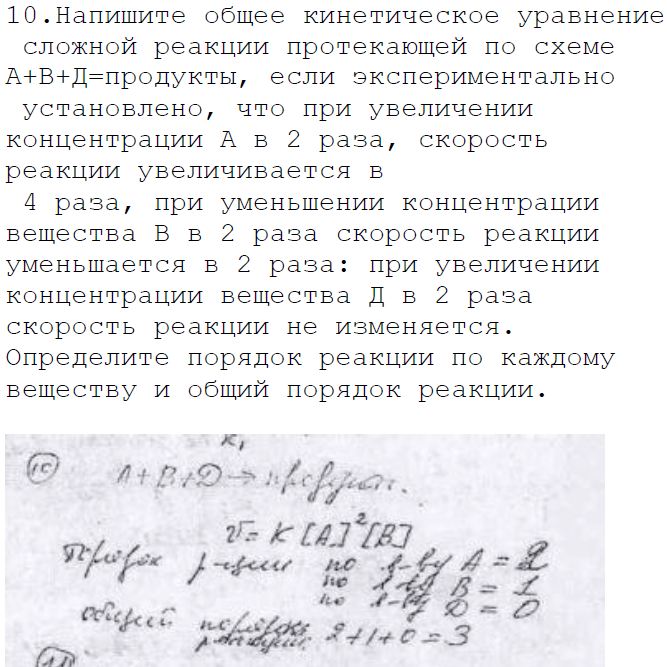 10.Напишите общее кинетическое уравнение
сложной реакции протекающей по схеме
А+В+Д=продукты, если экспериментально
установлено, что при увеличении
концентрации А в 2 раза, скорость
реакции увеличивается в
4 раза, при уменьшении концентрации
вещества В в 2 раза скорость реакции
уменьшается в 2 раза: при увеличении
концентрации вещества Д в 2 раза
скорость реакции не изменяется.
Определите порядок реакции по каждому
веществу и общий порядок реакции.
K₁
10
A+B+D→
V=K[A]²[B]
Порядок р-ции по в-ву A = 2
по в-ву B = 1
по в-ву D = 0
общий порядок 2+1+0=3
реакции
11